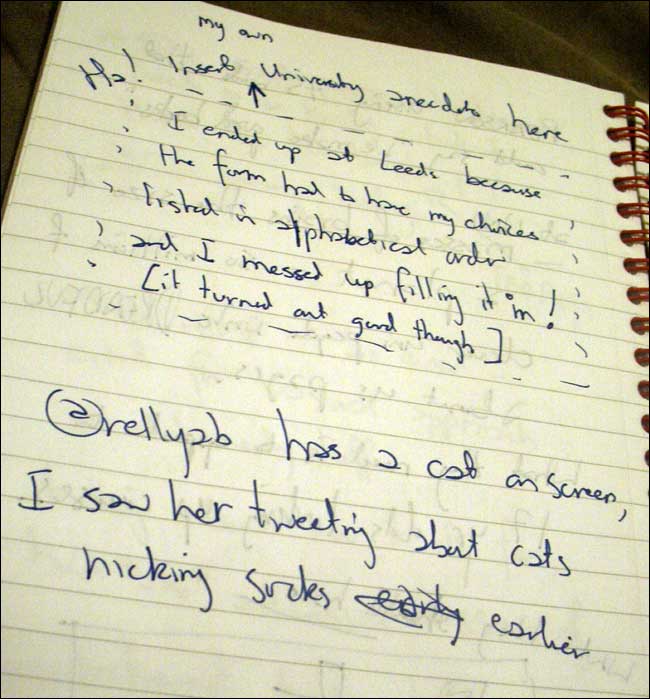 my own
Ha! Insert ↑ University anecdote here
I ended up at Leeds because
the form had to have my choices
listed in alphabetical order
and I messed up filling it in!
[it turned out good though]
@rellyab has a cat on screen,
I saw her tweeting about cats
nicking socks earlier